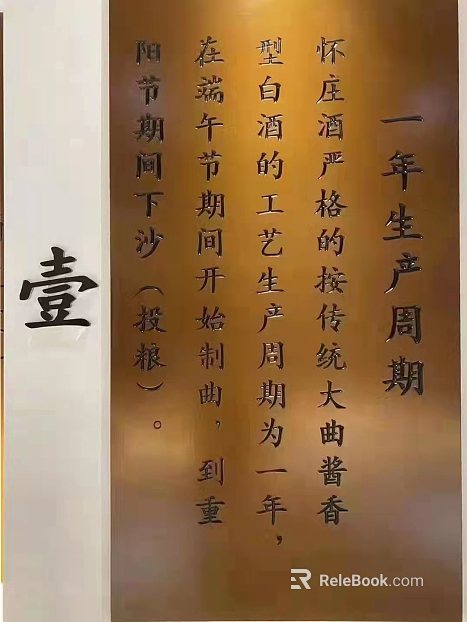 一年生产周期
怀庄酒严格的按传统大曲酱香
型白酒的工艺生产周期为一年，
在端午节期间开始制曲，到重
阳节期间下沙（投粮）。
壹
ReleBook.com